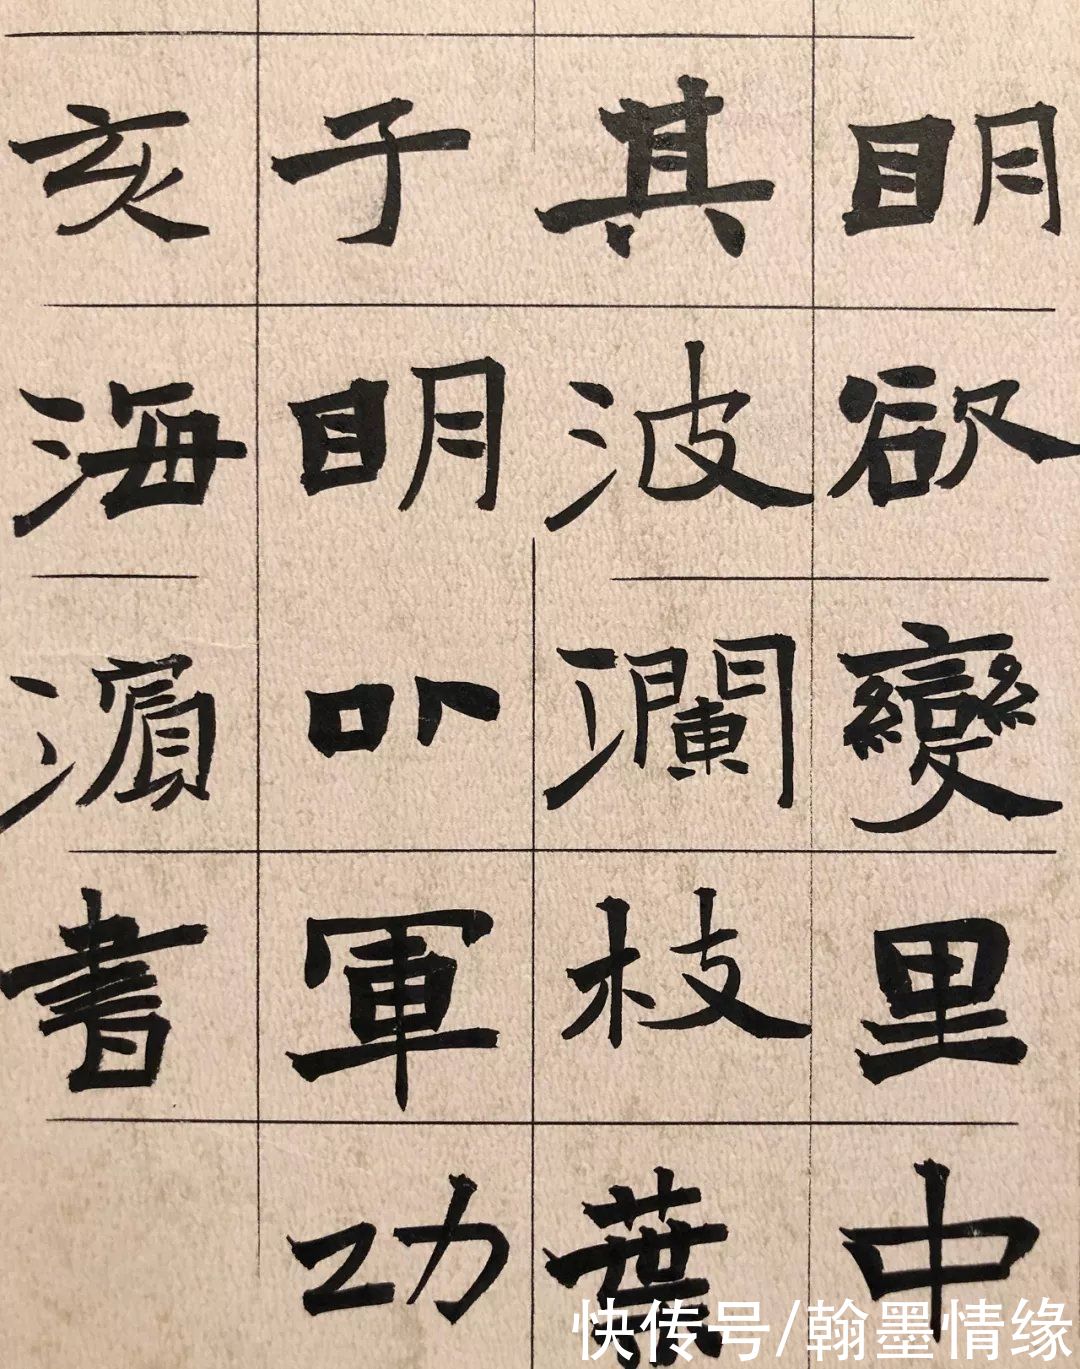 明欲變里中
其波瀾枝葉
子明以軍功
亥海濱書
快传号/翰墨情缘